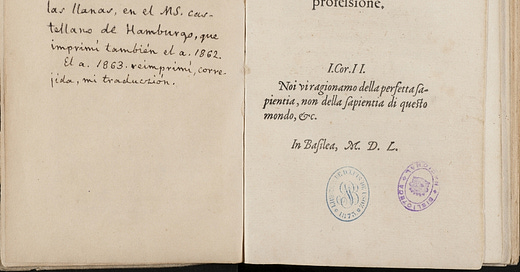 las llanas, en el MS. cas-
tellano de Hamburgo, que
imprimí también el a. 1862.
El a. 1863. reimprimí, corre-
jida, mi traduczión.
profeſsione,
I. Cor. I I.
Noi vi ragionamo della perfetta ſa-
pientia, non della ſapientia di queſto
mondo, &c.
In Baſilea, M. D. L.